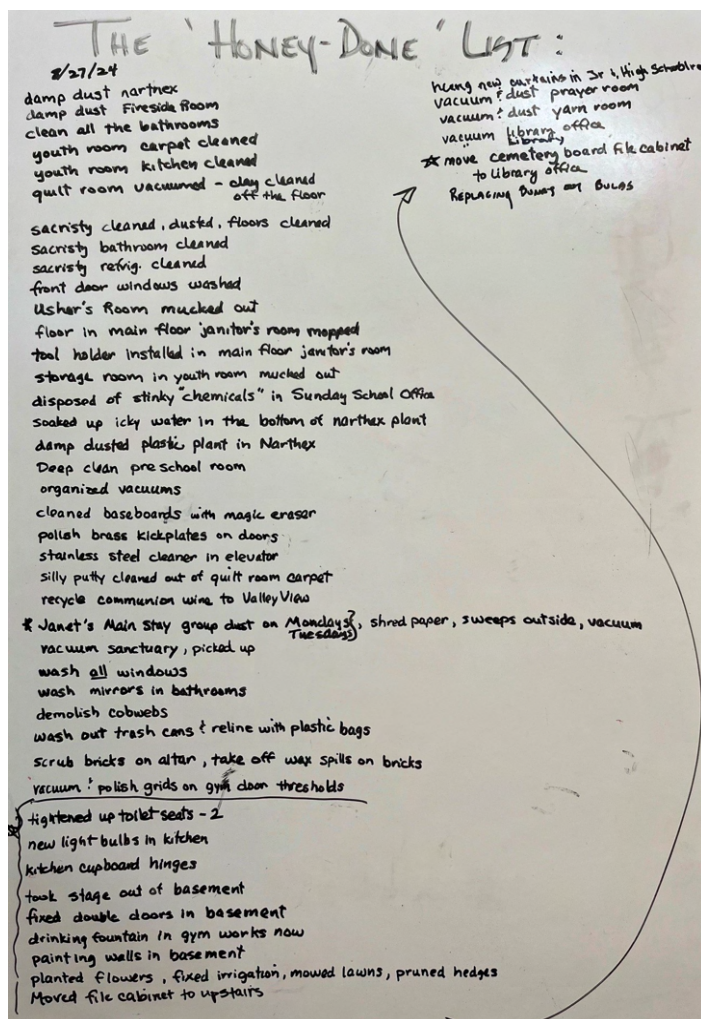 THE "HONEY-DONE" LIST:
8/27/24
damp dust nartnex
damp dust Fireside Room
clean all the bathrooms
youth room carpet cleaned
youth room kitchen cleaned
quilt room vacuumed - clay cleaned
off the floor
sacristy cleaned, dusted, floors cleaned
sacristy bathroom cleaned
sacristy refrig. cleaned
front door windows washed
Usher's Room mucked out
floor in main floor janitor's room mopped
tool holder installed in main floor janitor's room
storage room in youth room mucked out
disposed of stinky "chemicals" in Sunday School Office
soaked up icky water in the bottom of narthex plant
damp dusted plastic plant in Narthex
Deep clean pre school room
organized vacuums
cleaned baseboards with magic eraser
polish brass kickplates on doors
stainless steel cleaner in elevator
silly putty cleaned out of quilt room carpet
recycle communion wine to Valley View
* Janet's Main Stay group dust on Mondays, shred paper, sweeps outside, vacuum
Tuesdays
vacuum sanctuary, picked up
wash all windows
wash mirrors in bathrooms
demolish cobwebs
wash out trash cans & reline with plastic bags
scrub bricks on altar, take off wax spills on bricks
vacuum & polish grids on gym door thresholds
tightened up toilet seats - 2
new light bulbs in kitchen
kitchen cupboard hinges
took stage out of basement
fixed double doors in basement
drinking fountain in gym works now
painting walls in basement
planted flowers, fixed irrigation, mowed lawns, pruned hedges
Moved file cabinet to upstairs
hung new curtains in Jr &, High School
vacuum & dust prayer room
vacuum & dust yarn room
vacuum library office
Library
☆ move cemetery board file cabinet
to library office
REPLACING BULBS